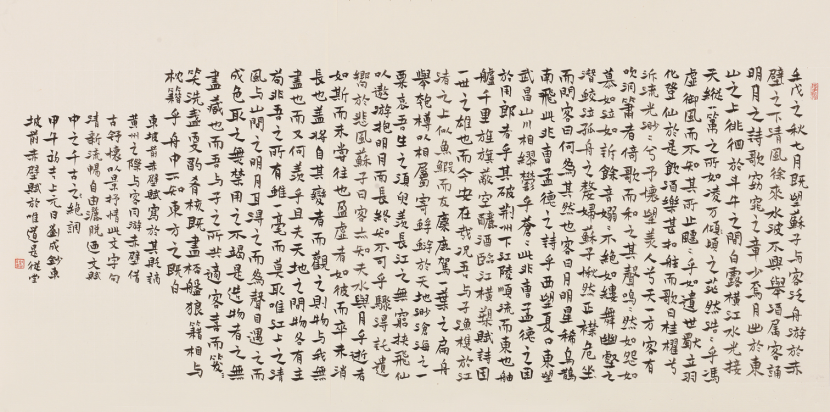 壬戌之秋七月既望蘇子與客泛舟游於赤
壁之下清風徐來水波不興舉酒屬客誦
明月之詩歌窈窕之章少焉月出於東
山之上徘徊於斗牛之間白露橫江水光接
天縱一葦之所如凌萬頃之茫然浩浩乎馮
虛御風而不知其所止飄飄乎如遺世獨立羽
化登仙於是飲酒樂甚扣舷而歌曰桂櫂兮
泝流光渺渺兮予懷望美人兮天一方客有
吹洞簫者倚歌而和之其聲嗚嗚然如怨如
慕如泣如訴餘音嫋嫋不絕如縷舞幽壑之
潛蛟泣孤舟之嫠婦蘇子愀然正襟危坐
而問客曰何為其然也客曰月明星稀烏鵲
南飛此非曹孟德之詩乎西望夏口東望
武昌山川相繆鬱乎蒼蒼此非曹孟德之困
於周郎者乎其破荊州下江陵順流而東也舳
艫千里旌旗蔽空釃酒臨江橫槊賦詩固
一世之雄也而今安在哉況吾與子漁樵於江
渚之上侶魚蝦而友麋鹿駕一葉之扁舟
舉匏樽以相屬寄蜉蝣於天地渺滄海之一
粟哀吾生之須臾羨長江之無窮挾飛仙
以遨遊抱明月而長終知不可乎驟得託遺
響於悲風蘇子曰客亦知夫水與月乎逝者
如斯而未嘗往也盈虛者如彼而卒未消
長也蓋將自其變者而觀之則物與我無
盡也而又何羨乎且夫天地之間物各有主
苟非吾之所有雖一毫而莫取唯江上之清
風與山間之明月耳得之而為聲目遇之而
成色取之無禁用之不竭是造物者之無
盡藏也而吾與子之所共適客喜而笑
笑洗盞更酌肴核既盡杯盤狼籍相與
枕籍乎舟中不知東方之既白
東坡前赤壁賦寫於其貶謫
黃州之際與客同游赤壁借
古舒懷以景抒情此文字句
清新流暢自由灑脫迺文賦
中之千古之絕調
甲午初夫上元日劉成鈔東
坡前赤壁賦於唯道是從堂